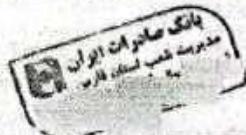 بانک صادرات ایران
مدیریت شعب استان فارس